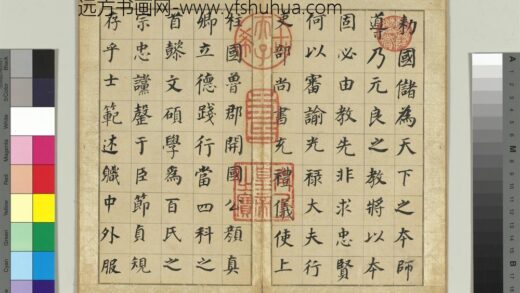 远方书画网: www.ytshuhua.com
勅國儲為天下之本師
導乃元良之教將以本
固必由教先非求忠賢
何以審諭光禄大夫行
吏部尚書充禮儀使上
柱國魯郡開國公顏真
卿立德踐行當四科之
首懿文碩學為百氏之
宗忠讜罄于臣節貞規
存乎士範述軄中外服